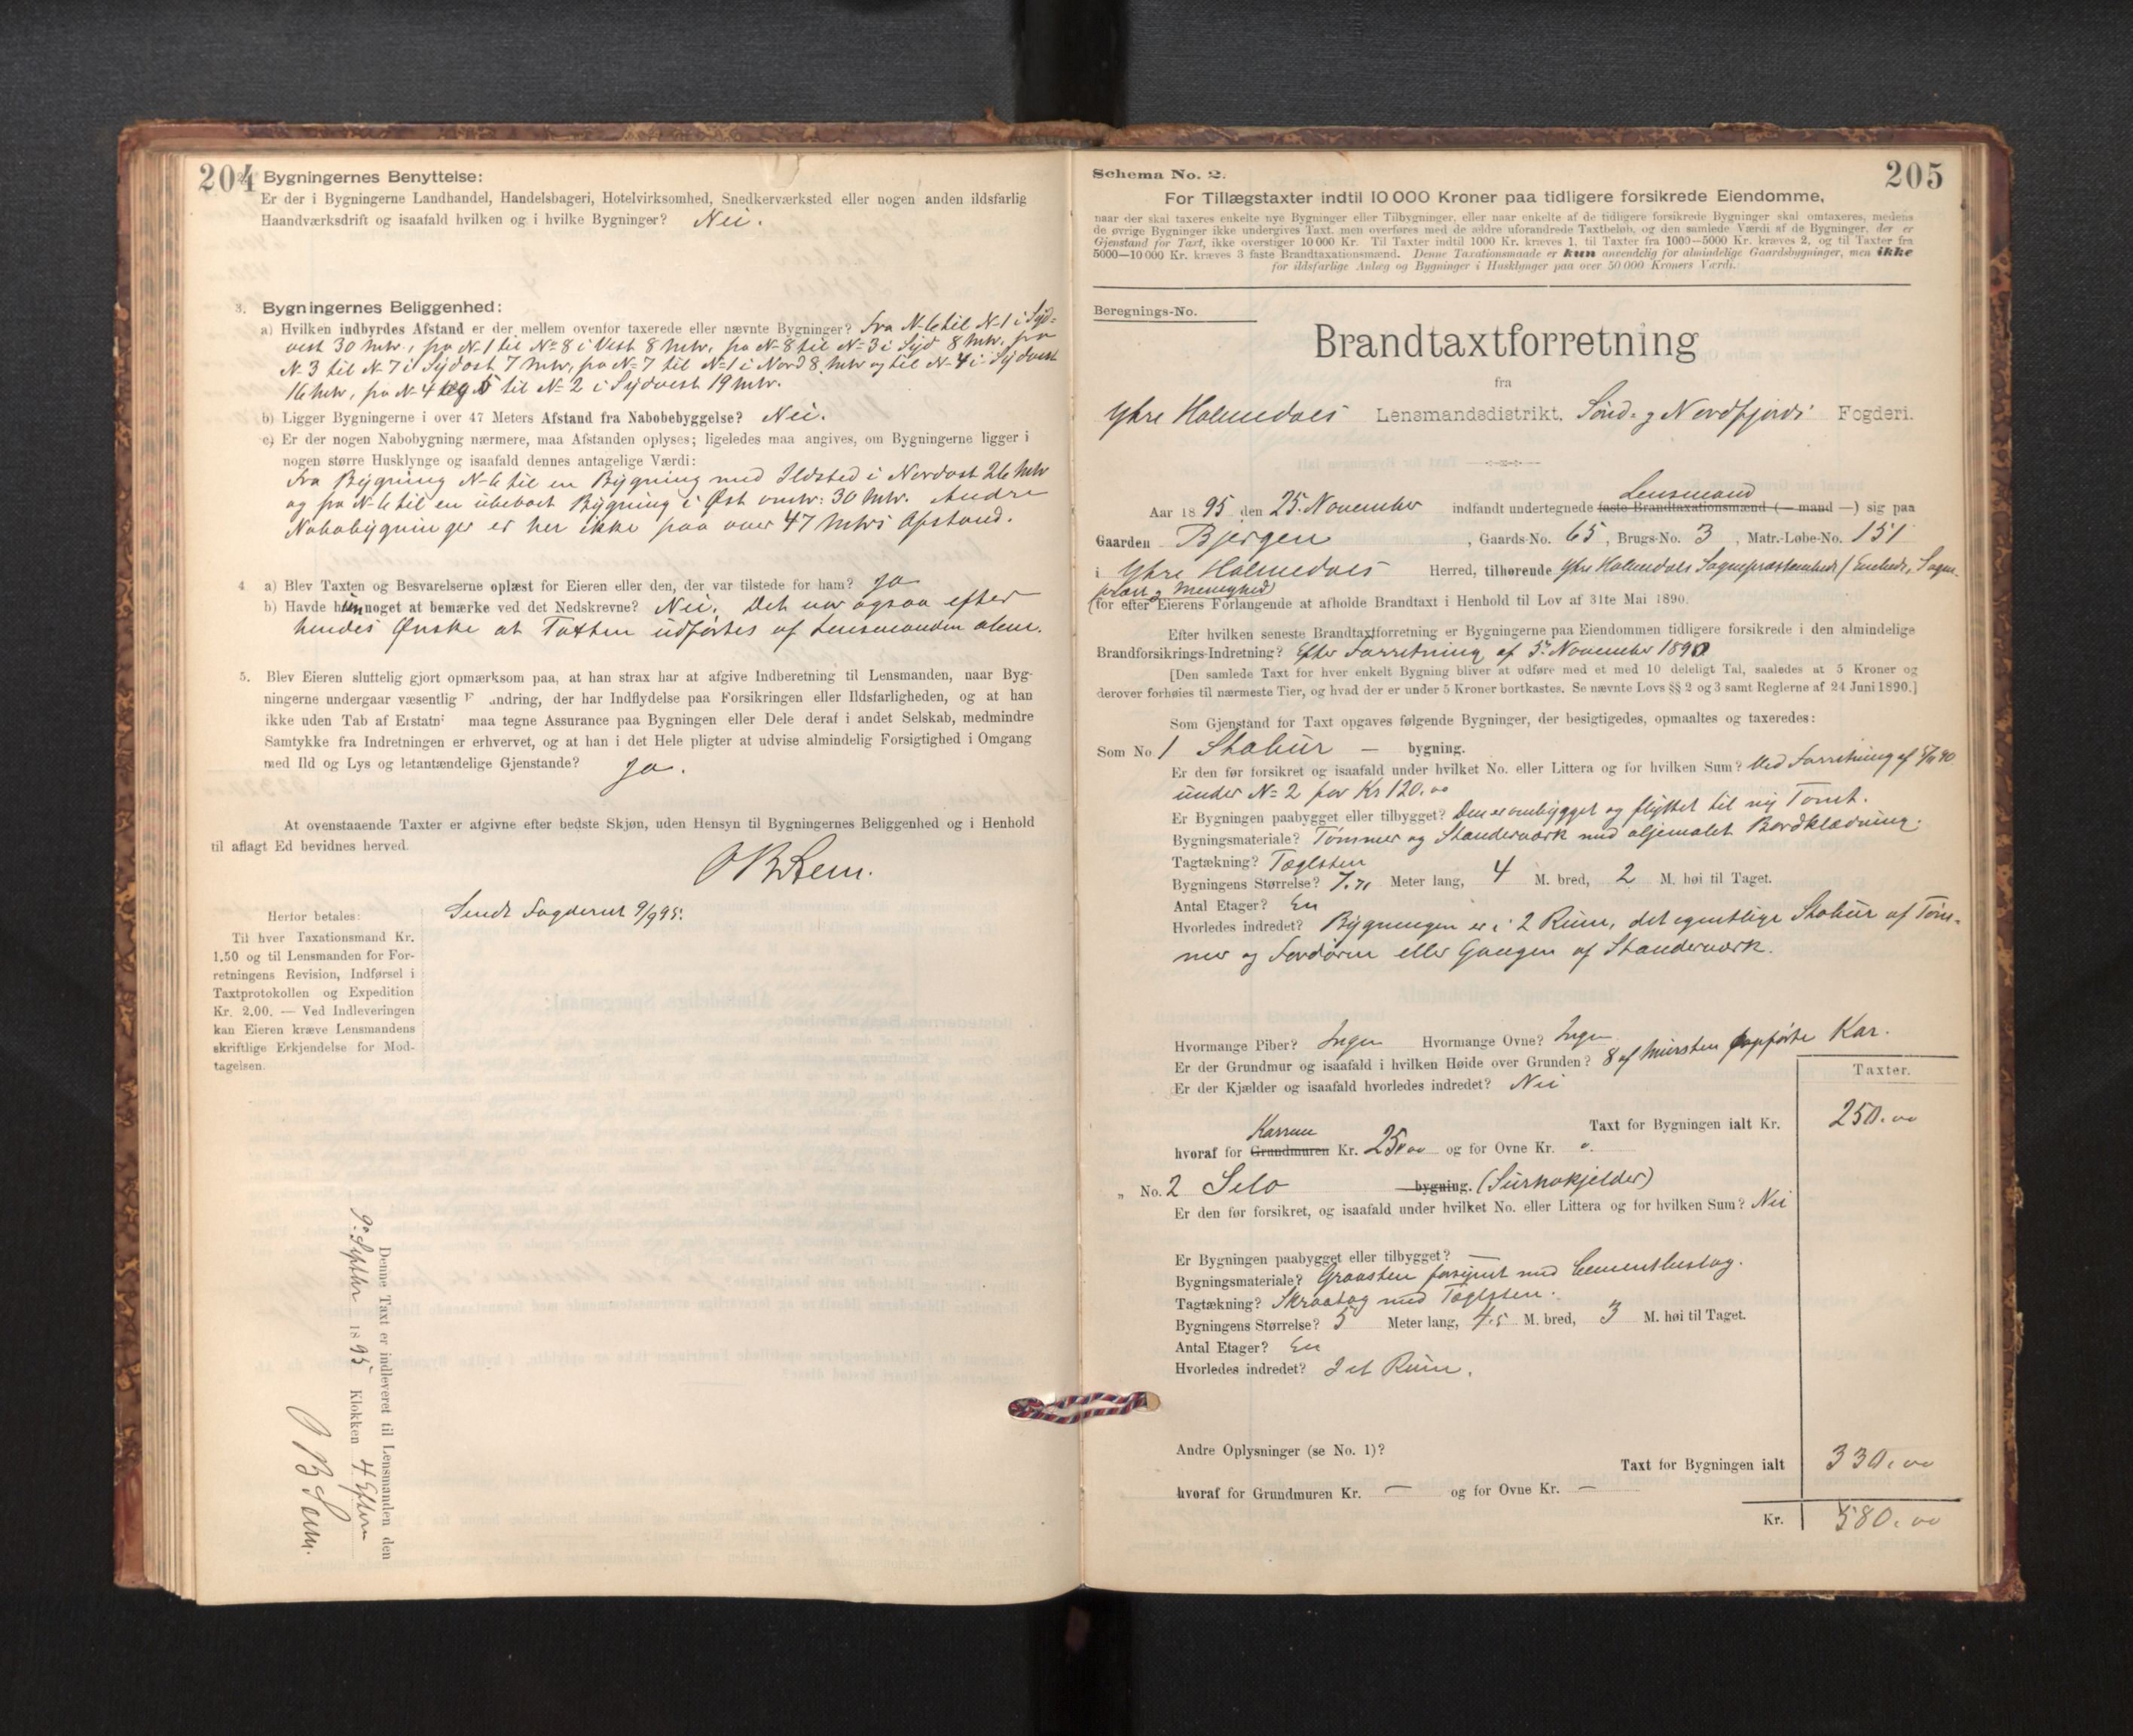 204
Bygningernes Benyttelse:
Er der i Bygningerne Landhandel, Handelsbageri, Hotelvirksomhed, Snedkerværksted eller nogen anden ildsfarlig
Haandværksdrift og isaafald hvilken og i hvilke Bygninger? Nei.
3. Bygningernes Beliggenhed:
a) Hvilken indbyrdes Afstand er der mellem ovenfor taxerede eller nævnte Bygninger? Fra N-6 til N-1 i Syd-
vest 30 Mtr., fra N-1 til No 8 i Vest 8 Mtr., fra N-8 til N-3 i Syd 8 Mtr., fra
N-3 til N-7 i Sydost 7 Mtr, fra N-7 til N-1 i Nord 8 Mtr og til N-4 i Sydvest
16 Mtr, fra N-4 og 5 til N-2 i Sydvest 19 Mtr.
b) Ligger Bygningerne i over 47 Meters Afstand fra Nabobebyggelse? Nei.
c) Er der nogen Nabobygning nærmere, maa Afstanden oplyses; ligeledes maa angives, om Bygningerne ligger i
nogen større Husklynge og isaafald dennes antagelige Værdi:
Fra Bygning N-6 til en Bygning med Ildsted i Nordost 26 Mtr
og fra N-6 til en ubeboet Bygning i Øst omtr: 30 Mtr. Andre
Nabobygninger er her ikke paa over 47 Mtrs Afstand.
4 a) Blev Taxten og Besvarelserne oplæst for Eieren eller den, der var tilstede for ham? Ja
b) Havde hun noget at bemærke ved det Nedskrevne? Nei. Det var ogsaa efter
hendes Ønske at Taxten udførtes af Lensmanden alene.
5. Blev Eieren sluttelig gjort opmærksom paa, at han strax har at afgive Indberetning til Lensmanden, naar Byg-
ningerne undergaar væsentlig F andring, der har Indflydelse paa Forsikringen eller Ildsfarligheden, og at han
ikke uden Tab af Erstatn maa tegne Assurance paa Bygningen eller Dele deraf i andet Selskab, medmindre
Samtykke fra Indretningen er erhvervet, og at han i det Hele pligter at udvise almindelig Forsigtighed i Omgang
med Ild og Lys og letantændelige Gjenstande? Ja.
At ovenstaaende Taxter er afgivne efter bedste Skjøn, uden Hensyn til Bygningernes Beliggenhed og i Henhold
til aflagt Ed bevidnes herved.
O B Sem.
Herfor betales:
Til hver Taxationsmand Kr.
1.50 og til Lensmanden for For-
retningens Revision, Indførsel i
Taxtprotokollen og Expedition
Kr. 2.00. — Ved Indleveringen
kan Eieren kræve Lensmandens
skriftlige Erkjendelse for Mod-
tagelsen.
Sendt Fogderiet 9/9 95.
Denne Taxt er indleveret til Lensmanden den
9. Septbr 1895 Klokken 4 Efterm
O B Sem.
205
Schema No. 2.
For Tillægstaxter indtil 10 000 Kroner paa tidligere forsikrede Eiendomme,
naar der skal taxeres enkelte nye Bygninger eller Tilbygninger, eller naar enkelte af de tidligere forsikrede Bygninger skal omtaxeres, medens
de øvrige Bygninger ikke undergives Taxt, men overføres med de ældre uforandrede Taxtbeløb, og den samlede Værdi af de Bygninger, der er
Gjenstand for Taxt, ikke overstiger 10 000 Kr. Til Taxter indtil 1000 Kr. kræves 1, til Taxter fra 1000—5000 Kr. kræves 2, og til Taxter fra
5000—10 000 Kr. kræves 3 faste Brandtaxationsmænd. Denne Taxationsmaade er kun anvendelig for almindelige Gaardsbygninger, men ikke
for ildsfarlige Anlæg og Bygninger i Husklynger paa over 50 000 Kroners Værdi.
Beregnings-No.
Brandtaxtforretning
fra
Ytre Holmedals Lensmandsdistrikt, Sønd- og Nordfjords Fogderi.
Aar 1895 den 25. November indfandt undertegnede faste Brandtaxationsmænd (— mand —) Lensmand sig paa
Gaarden Bjergen, Gaards-No. 65, Brugs-No. 3, Matr.-Løbe-No. 151
i Ytre Holmedals Herred, tilhørende Ytre Holmedals Sognepræsteembede (Enkeds, Sogne-
præst og Menighed)
for efter Eierens Forlangende at afholde Brandtaxt i Henhold til Lov af 31te Mai 1890.
Efter hvilken seneste Brandtaxtforretning er Bygningerne paa Eiendommen tidligere forsikrede i den almindelige
Brandforsikrings-Indretning? Efter Forretning af 5. November 1890
[Den samlede Taxt for hver enkelt Bygning bliver at udføre med et med 10 deleligt Tal, saaledes at 5 Kroner og
derover forhøies til nærmeste Tier, og hvad der er under 5 Kroner bortkastes. Se nævnte Lovs §§ 2 og 3 samt Reglerne af 24 Juni 1890.]
Som Gjenstand for Taxt opgaves følgende Bygninger, der besigtigedes, opmaaltes og taxeredes:
Som No. 1 Stabur — bygning.
Er den før forsikret og isaafald under hvilket No. eller Littera og for hvilken Sum? Ved Forretning af 5/11 90
under N- 2 for Kr 120.00
Er Bygningen paabygget eller tilbygget? Den er ombygget og flyttet til ny Tomt.
Bygningsmateriale? Tømmer og Standerværk med oljemalet Bordklædning.
Tagtækning? Taglsten
Bygningens Størrelse? 7.71 Meter lang, 4 M. bred, 2 M. høi til Taget.
Antal Etager? En
Hvorledes indredet? Bygningen er i 2 Rum, det egentlige Stabur af Tøm-
mer og Fordøren eller Gangen af Standerværk.
Hvormange Piber? Ingen Hvormange Ovne? Ingen
Er der Grundmur og isaafald i hvilken Høide over Grunden? 8 af Mursten opførte Kar.
Er der Kjælder og isaafald hvorledes indredet? Nei
Taxter.
Taxt for Bygningen ialt Kr. 250.00
hvoraf for Grundmuren Karrene Kr. 25.00 og for Ovne Kr. 0.
„ No. 2 Silo bygning. (Surhøkjelder)
Er den før forsikret, og isaafald under hvilket No. eller Littera og for hvilken Sum? Nei
Er Bygningen paabygget eller tilbygget? —
Bygningsmateriale? Graasten forsynet med Cementbeslag.
Tagtækning? Skraatag med Taglsten.
Bygningens Størrelse? 5 Meter lang, 4.5 M. bred, 3 M. høi til Taget.
Antal Etager? En
Hvorledes indredet? I et Rum.
Andre Oplysninger (se No. 1)?
Taxt for Bygningen ialt 330.00
hvoraf for Grundmuren Kr. — og for Ovne Kr. —
Kr. 580.00